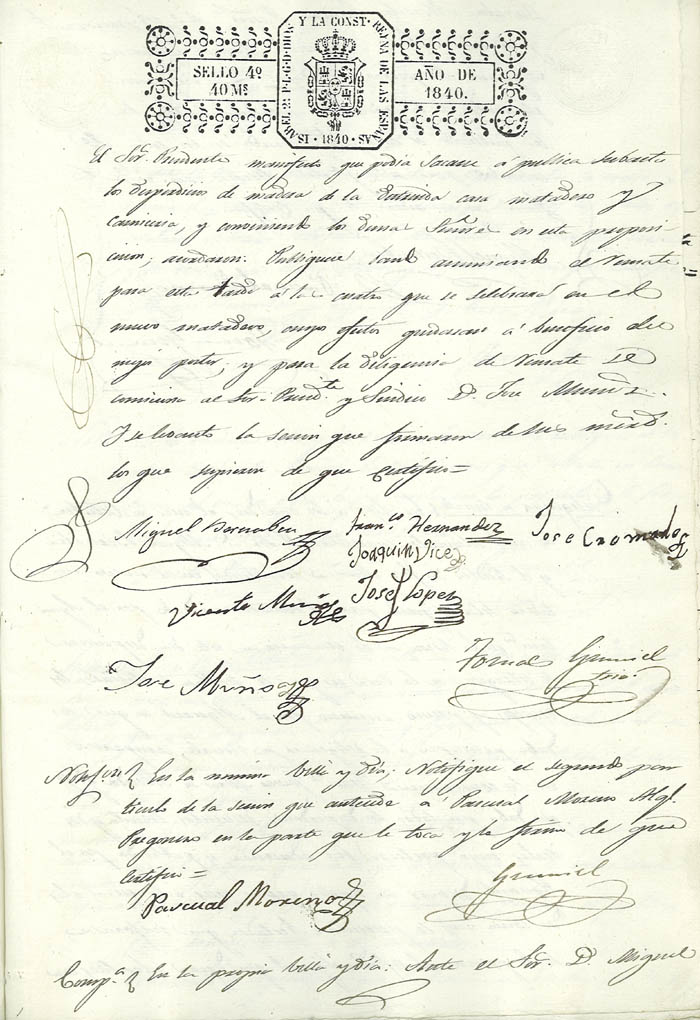 ISABEL 2ª P.L.G.D DIOS Y LA CONST. REYNA DE LAS ESPAÑAS
SELLO 4º
40 Ms
AÑO DE
1840.
· 1840 ·
El Sor. Presidente manifesto que podia sacarse á publica subasta
los desperdicios de madera de la derruida casa matadero y
Carniceria, y conviniendo los demas Señores en esta proposi-
cion; acordaron: Publiquese bando anunciando el Remate
para esta tarde á las cuatro que se selebrará en el
nuevo matadero, cuyos efectos quedaran á beneficio del
mejor postor; y para la diligencia de Remate se
comisiona al Sor. Presidte. y Sindico D. Jose Muñoz.
Y se levanto la secion que firmaron de sus mrds.
los que supieron de que Certifico =
Miguel Bernabeu
Franco. Hernandez
Jose
Joaquin Vice
Vicente Muñoz
Josef Lopez
Jose Muñoz
Tomas Gumiel
srio.
Notifon. En la misma Villa y dia; Notifique el segundo par-
ticular de la secion que antecede á Pascual Moreno Algl.
Pregonero en la parte que le toca y la firmo de que
Certifico =
Pascual Moreno
Gumiel
Compa. En la propia Villa y dia: Ante el Sor. D. Miguel